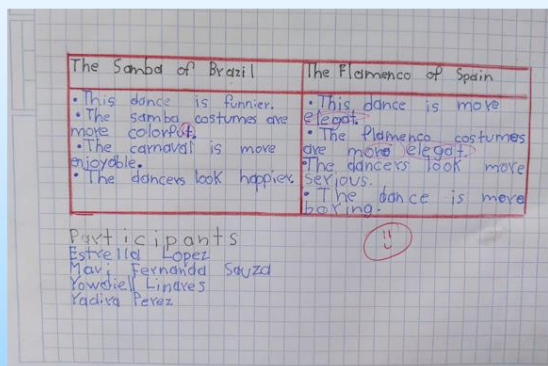 The Samba of Brazil
• This dance is funnier.
• The samba costumes are
more colorful.
• The carnaval is more
enjoyable.
• The dancers look happier.
The Flamenco of Spain
• This dance is more
elegat.
• The flamenco costumes
are more elegat.
• The dancers look more
serious.
• The dance is more
boring.
Participants
Estrella Lopez
Mavi Fernanda Souza
Yowdiell Linares
Yadira Perez